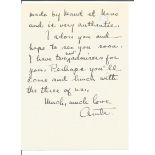 made by hand at home
and is very authentic.
I adore you and
hope to see you soon.
I have two admirers for
you. Perhaps you'll
come and lunch with
the three of us.
Much, much love